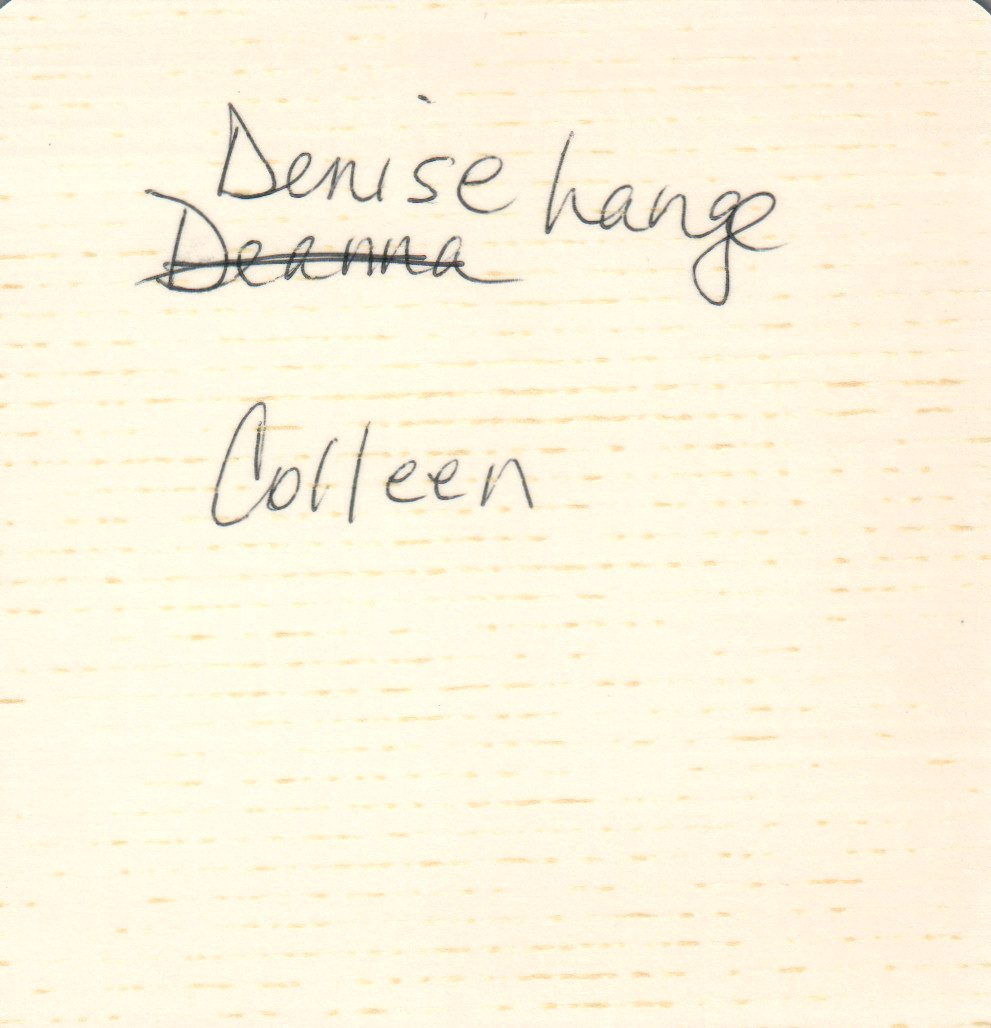 Denise hange
Deanna
Colleen